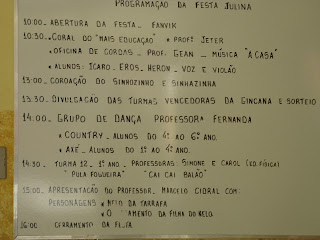 PROGRAMAÇÃO DA FESTA JULINA
10:00_ ABERTURA DA FESTA_ FANVIK
10:30_ • CORAL DO "MAIS EDUCAÇÃO" • PROFª JETER
• OFICINA DE CORDAS _ PROF. GEAN _ MÚSICA "A CASA"
• ALUNOS: ICARO_EROS_HERON_ VOZ E VIOLÃO
13:00_ COROAÇÃO DO SINHOZINHO E SINHAZINHA
13:30_ DIVULGAÇÃO DAS TURMAS VENCEDORAS DA GINCANA E SORTEIO
14:00_ GRUPO DE DANÇA PROFESSORA FERNANDA
• COUNTRY_ ALUNOS DO 4º AO 6º ANO.
• AXÉ_ ALUNOS DO 1º AO 4º ANO.
14:30 _ TURMA 12_ 1º ANO_ PROFESSORAS: SIMONE E CAROL (ED. FÍSICA)
"PULA FOGUEIRA" "CAI CAI BALÃO"
15:00_ APRESENTAÇÃO DO PROFESSOR MARCELO CIDRAL COM:
PERSONAGENS • NELO DA TARRAFA
• O CASAMENTO DA FILHA DO NELO
16:00 ENCERRAMENTO DA FESTA